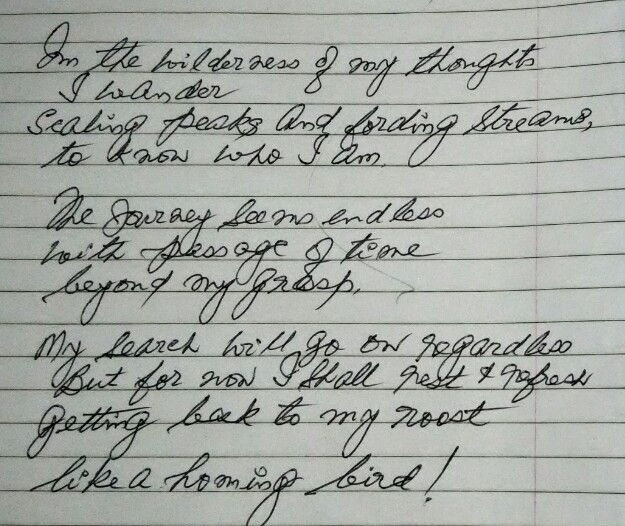 In the wilderness of my thoughts
I wander
Scaling peaks and fording streams,
to know who I am.
The journey seems endless
with passage of time
beyond my grasp.
My search will go on regardless
But for now I shall rest & refresh
Getting back to my roost
like a homing bird!